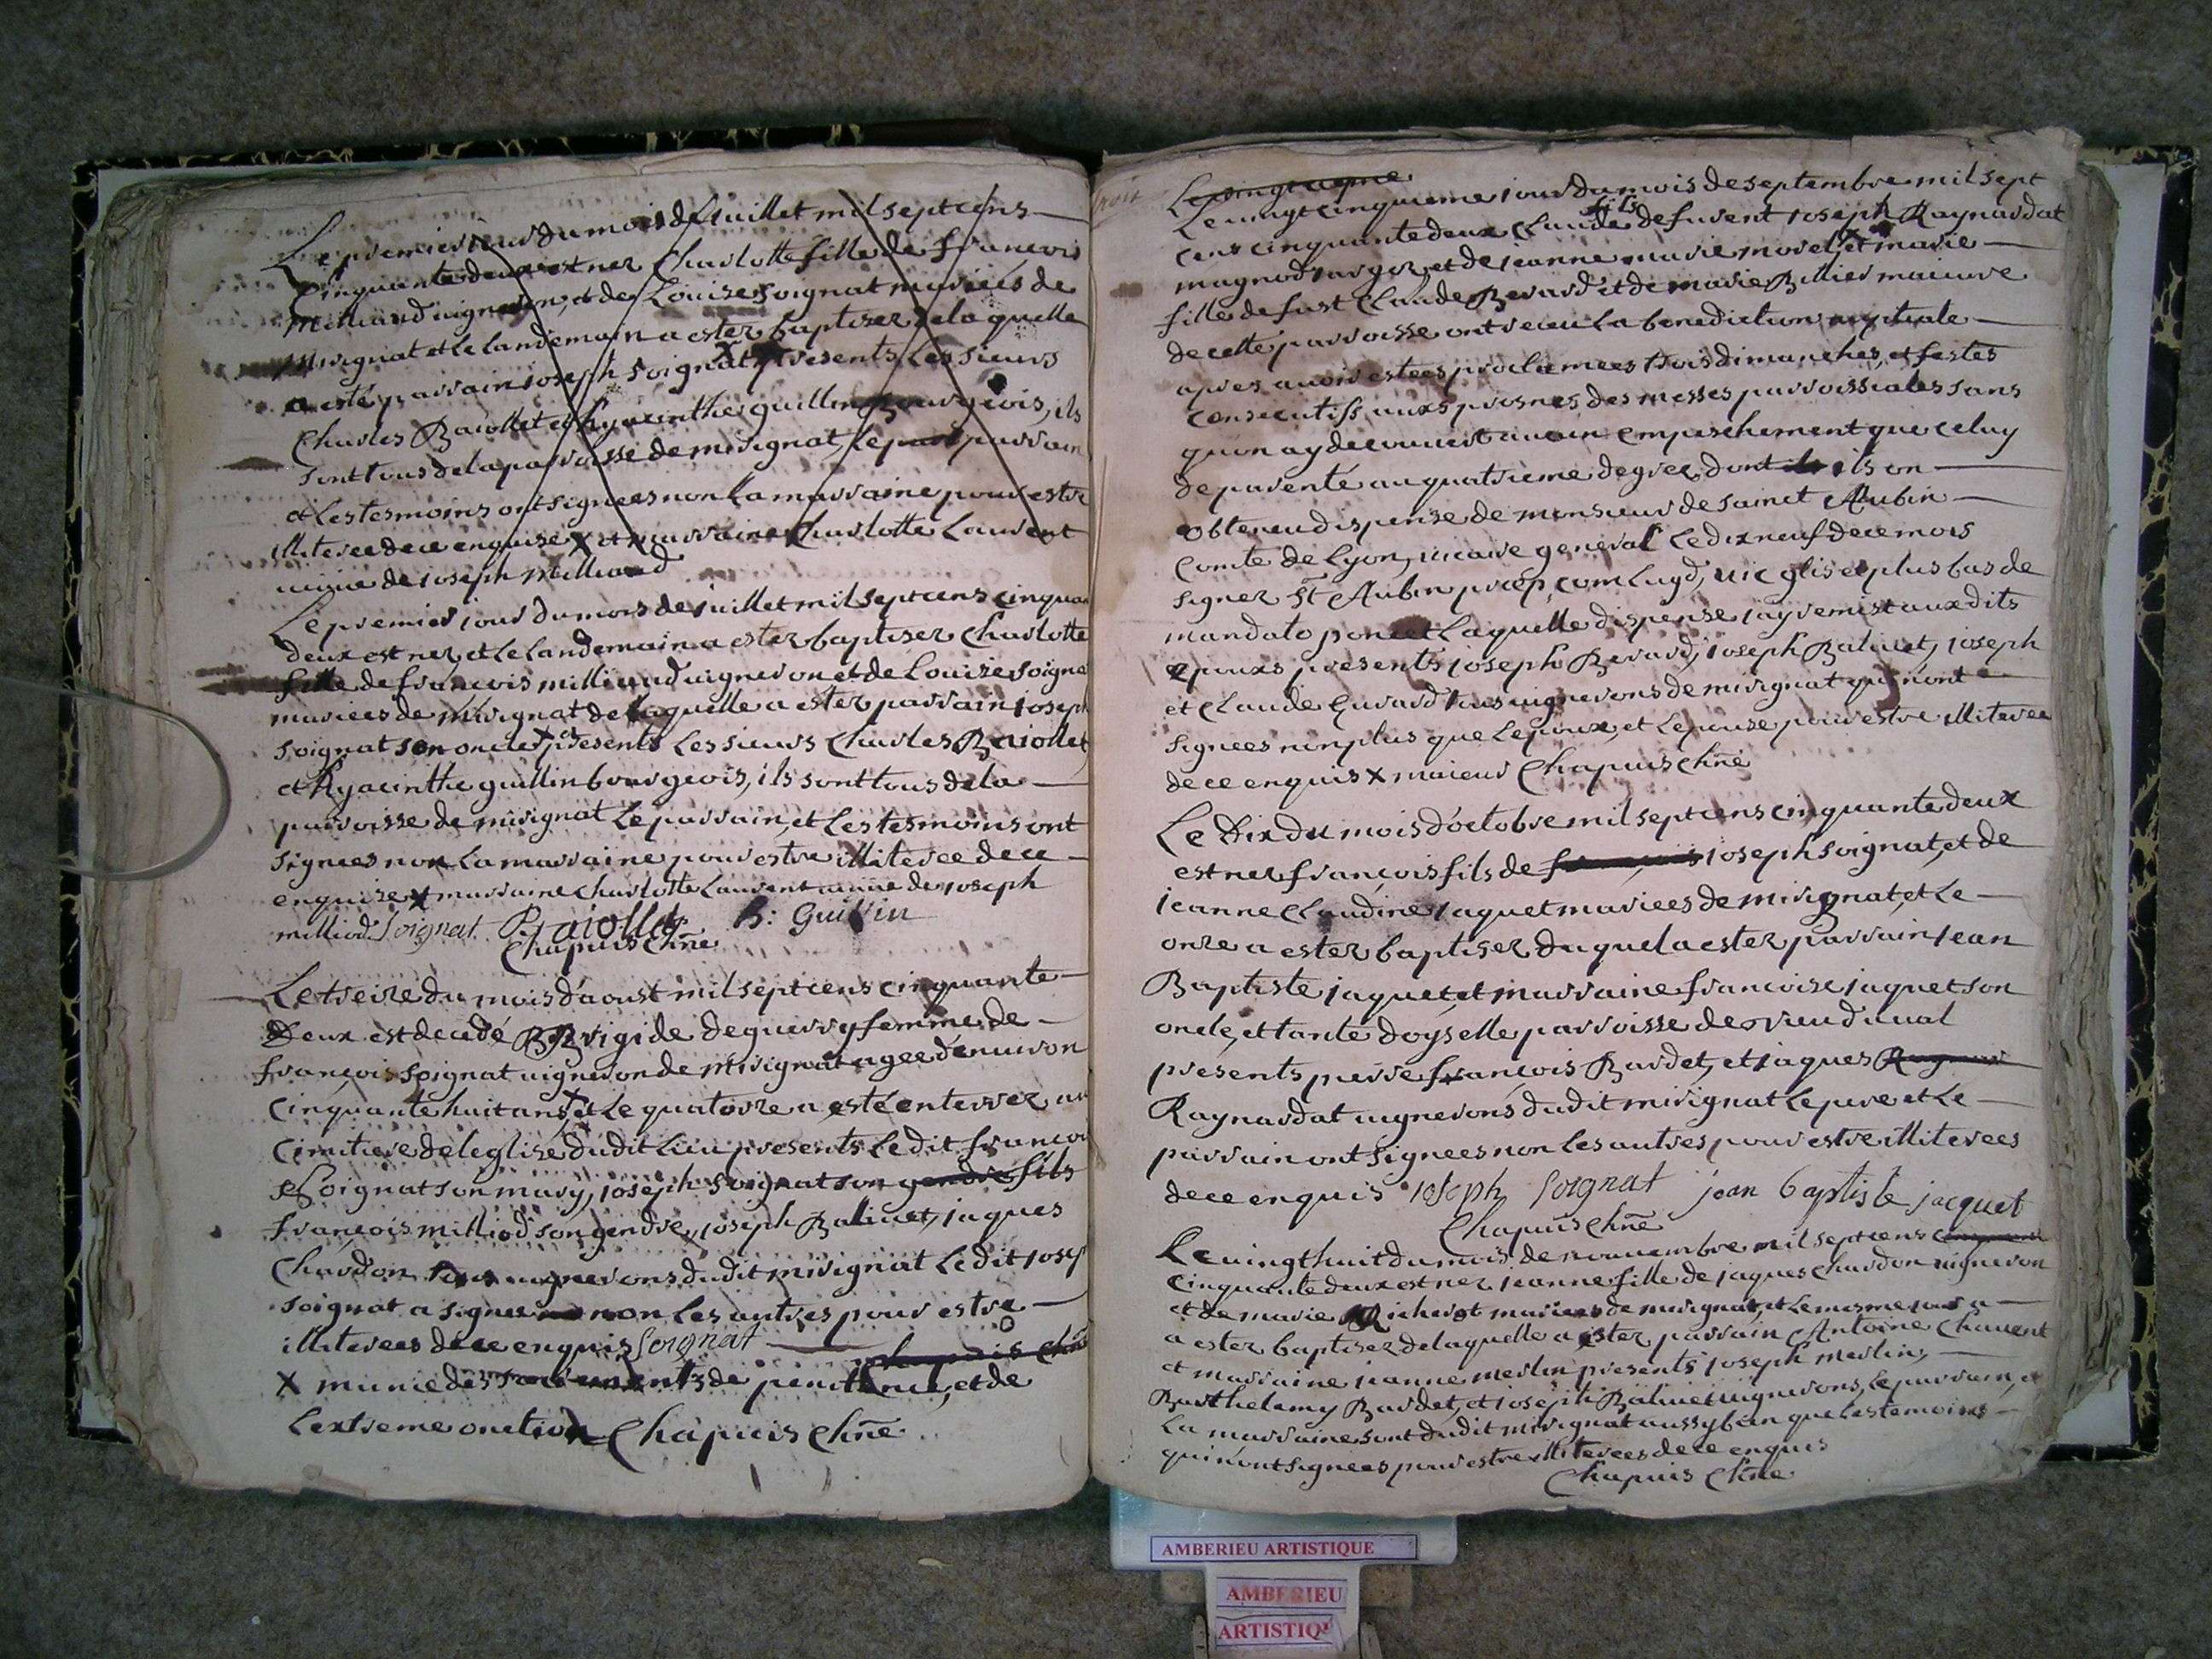 Le premier jour du mois de juillet mil sept cens
cinquante deux est nez Charlotte fille de francois
milliand vigneron, et de Louize soignat mariées de
mirignat et le landemain a ester baptisez de la quelle
a esté parrain ioseph soignat presents les sieurs
Charles Baiollet et hyacinthe guillin Bourgeois, ils
sont tous de la parroisse de mirignat, le parrain
et les tesmoins ont signees non la marraine pour estre
illiteree de ce enquise X et marraine Charlotte Laurent
de ioseph Milliand
Le premier iour du mois de juillet mil sept cens cinquan
deux est nez, et le landemain a ester baptisez Charlotte
fille de francois milliand vigneron et de Louize soigna
mariees de mirignat de laquelle a ester parrain ioseph
soignat son oncle X presents les sieurs Charles Baiollet
et Hyacinthe guillin bourgeois, ils sont tous de la
parroisse de mirignat le parrain, et les tesmoins ont
signees non la marraine pour estre illiteree de ce
enquise X marraine Charlotte Laurent de ioseph
milliod Soignat Baiollet h: Guillin
Chapuis Chne
Le treize du mois d'aoust mil sept cens cinquante
Deux est decedé Brigide deguerry femme de
françois soignat vigneron de mirignat agee d'enuiron
cinquante huit ans X et le quatorze a esté enterrez au
cimitiere de leglise dudit lieu presents le dit françoi
Soignat son mary, ioseph soignat son gendre fils
françois milliod son gendre, ioseph Baliuet, iaques
Chardon tous vignerons dudit mirignat le dit iosep
soignat a signez non les autres pour estre
illiterees de ce enquis Soignat Chapuis Chne
X munie des sacrements de penitence, et de
lextreme onction Chapuis Chne
Le vingt
Le vingt cinquieme iour du mois de septembre mil sept
cens cinquante deux Claude fils de fuvent ioseph Raynardat
magnod et de ieanne marie morel, et marie
fille de fust Claude Berard et de marie Billier maieure
de cette parroisse ont receu la benediction nuptiale
apres auoir estees proclamees trois dimanches, et festes
consecutifs auxs prosnes des messes parroissiales sans
qu'on ay decouuert aucun empeschement que celuy
de parenté au quatrieme degrez dont ils on
obteneu dispense de monsieur de sainct Aubin
Comte de Lyon, vicaire general le dix neuf de ce mois
signez St Aubin com Lugd, vic et plus bas de
mandato laquelle dispense iay remist auxdits
epouxs presents ioseph Berard, ioseph Baliuet, ioseph
et Claude Guvard tous vignerons de mirignat qui n'ont
signees non plus que lepoux, et lepouse pour estre illiterees
de ce enquis X maieur Chapuis Chne
Le Dix du mois d'octobre mil sept cens cinquante deux
est nez françois fils de françois ioseph soignat, et de
ieanne Claudine iaquet mariees de mirignat, et le
onze a ester baptisez du quel a ester parrain iean
Baptiste iaquet, et marraine francoize iaquet son
oncle, et tante d'oyselle parroisse de rieu d'ival
presents pierre françois Bardet, et iaques
Raynardat vignerons dudit mirignat le pere et le
parrain ont signees non les autres pour estre illiterees
de ce enquis ioseph Soignat jean baptiste jacquet
Chapuis Chne
Le vingt huit du mois de nouembre mil sept cens
cinquante deux est nez ieanne fille de iaques Chardon vigneron
et de marie Richerot mariees de mirignat, et le mesme iour a
a ester baptisez de laquelle a ester parrain Antoine Chauent
et marraine ieanne merlin presents ioseph merlin,
Barthelemy Bardet, et ioseph Baliuet vignerons, le parrain, et
la marraine sont dudit mirignat aussy bien que les temoins
qui n'ont signees pour estre illiterees de ce enquis
Chapuis Chne
AMBERIEU ARTISTIQUE
AMBERIEU
ARTISTIQU